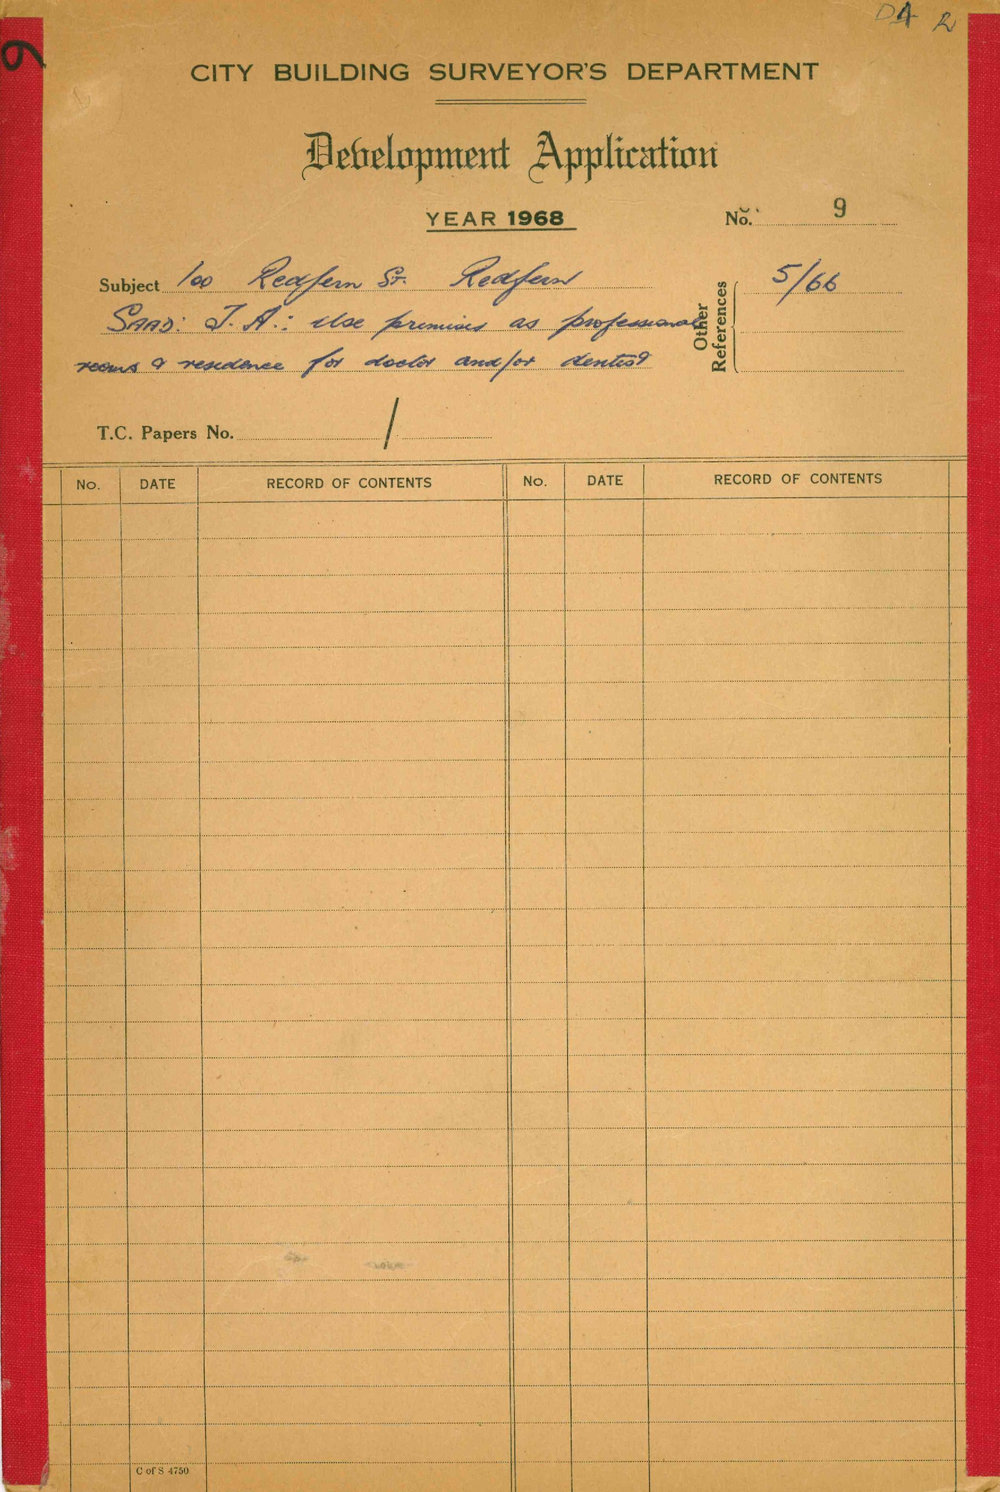 DA R
9
CITY BUILDING SURVEYOR'S DEPARTMENT
Development Application
YEAR 1968
No. 9
Subject 100 Redfern St. Redfern
SAAD: J. A.: Use premises as professional
rooms & residence for doctor and/or dentist
Other References
5/66
T.C. Papers No. /
No. DATE RECORD OF CONTENTS No. DATE RECORD OF CONTENTS
C of S 4750